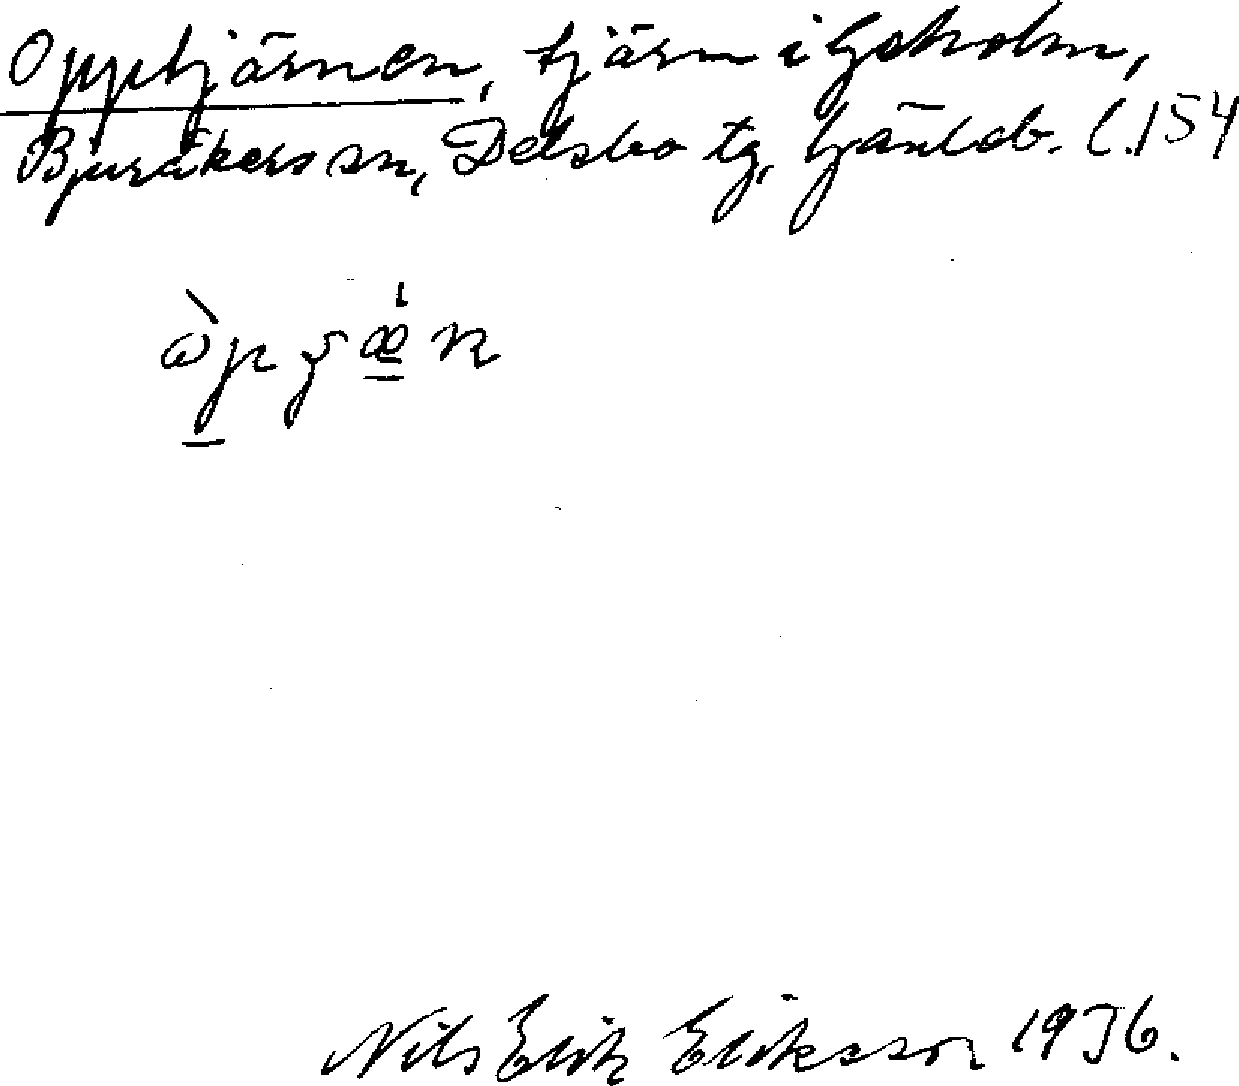 Opptjärnen, tjärn i Gsholm,
Bjuråkers sn, Delsbo tg, Gävleb. l. 154
Nils Erik Eriksson 1936.